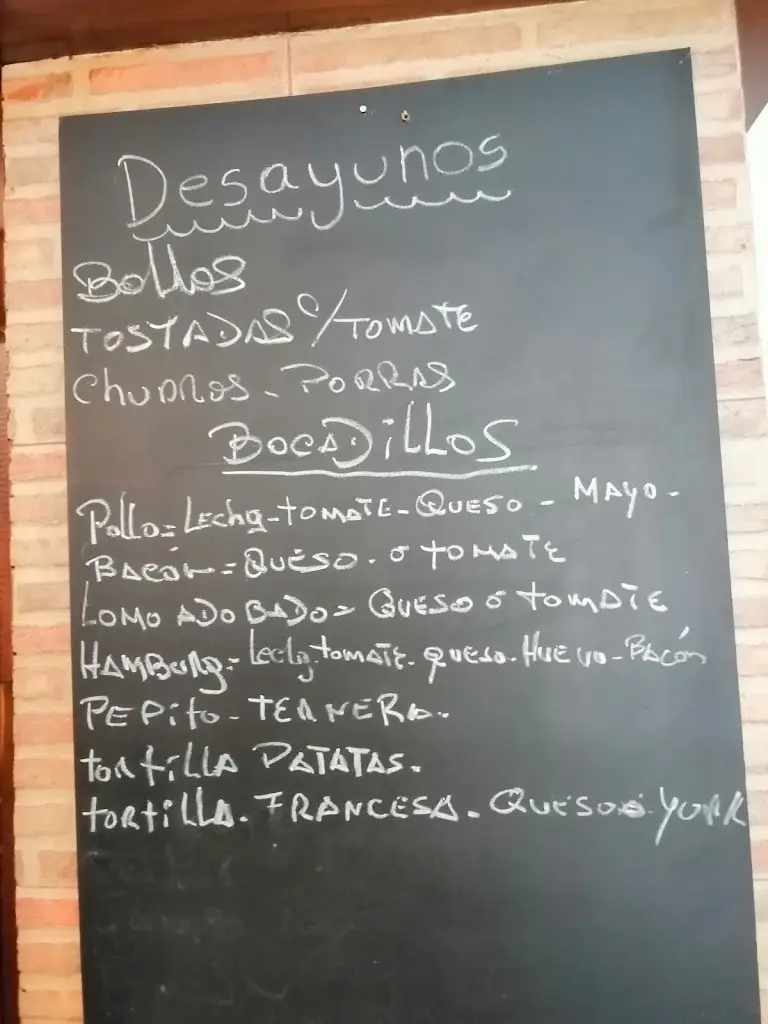 Desayunos
Bollos
TOSTADAS C/TOMATE
Churros - PORRAS
BOCADiLLOS
Pollo = Lechg - tOMATE - QUESO - MAYO -
BACÓN = QUESO - Ó TOMATE
LOMO ADOBADO = QUESO Ó TOMATE
HAMBURg = Lechg - tomATE - queso - HUEVO - BACóN
PEPito - TERNERA.
tortiLLA PATATAS.
tORtiLLA - FRANCESA - QUESO Ó YORK